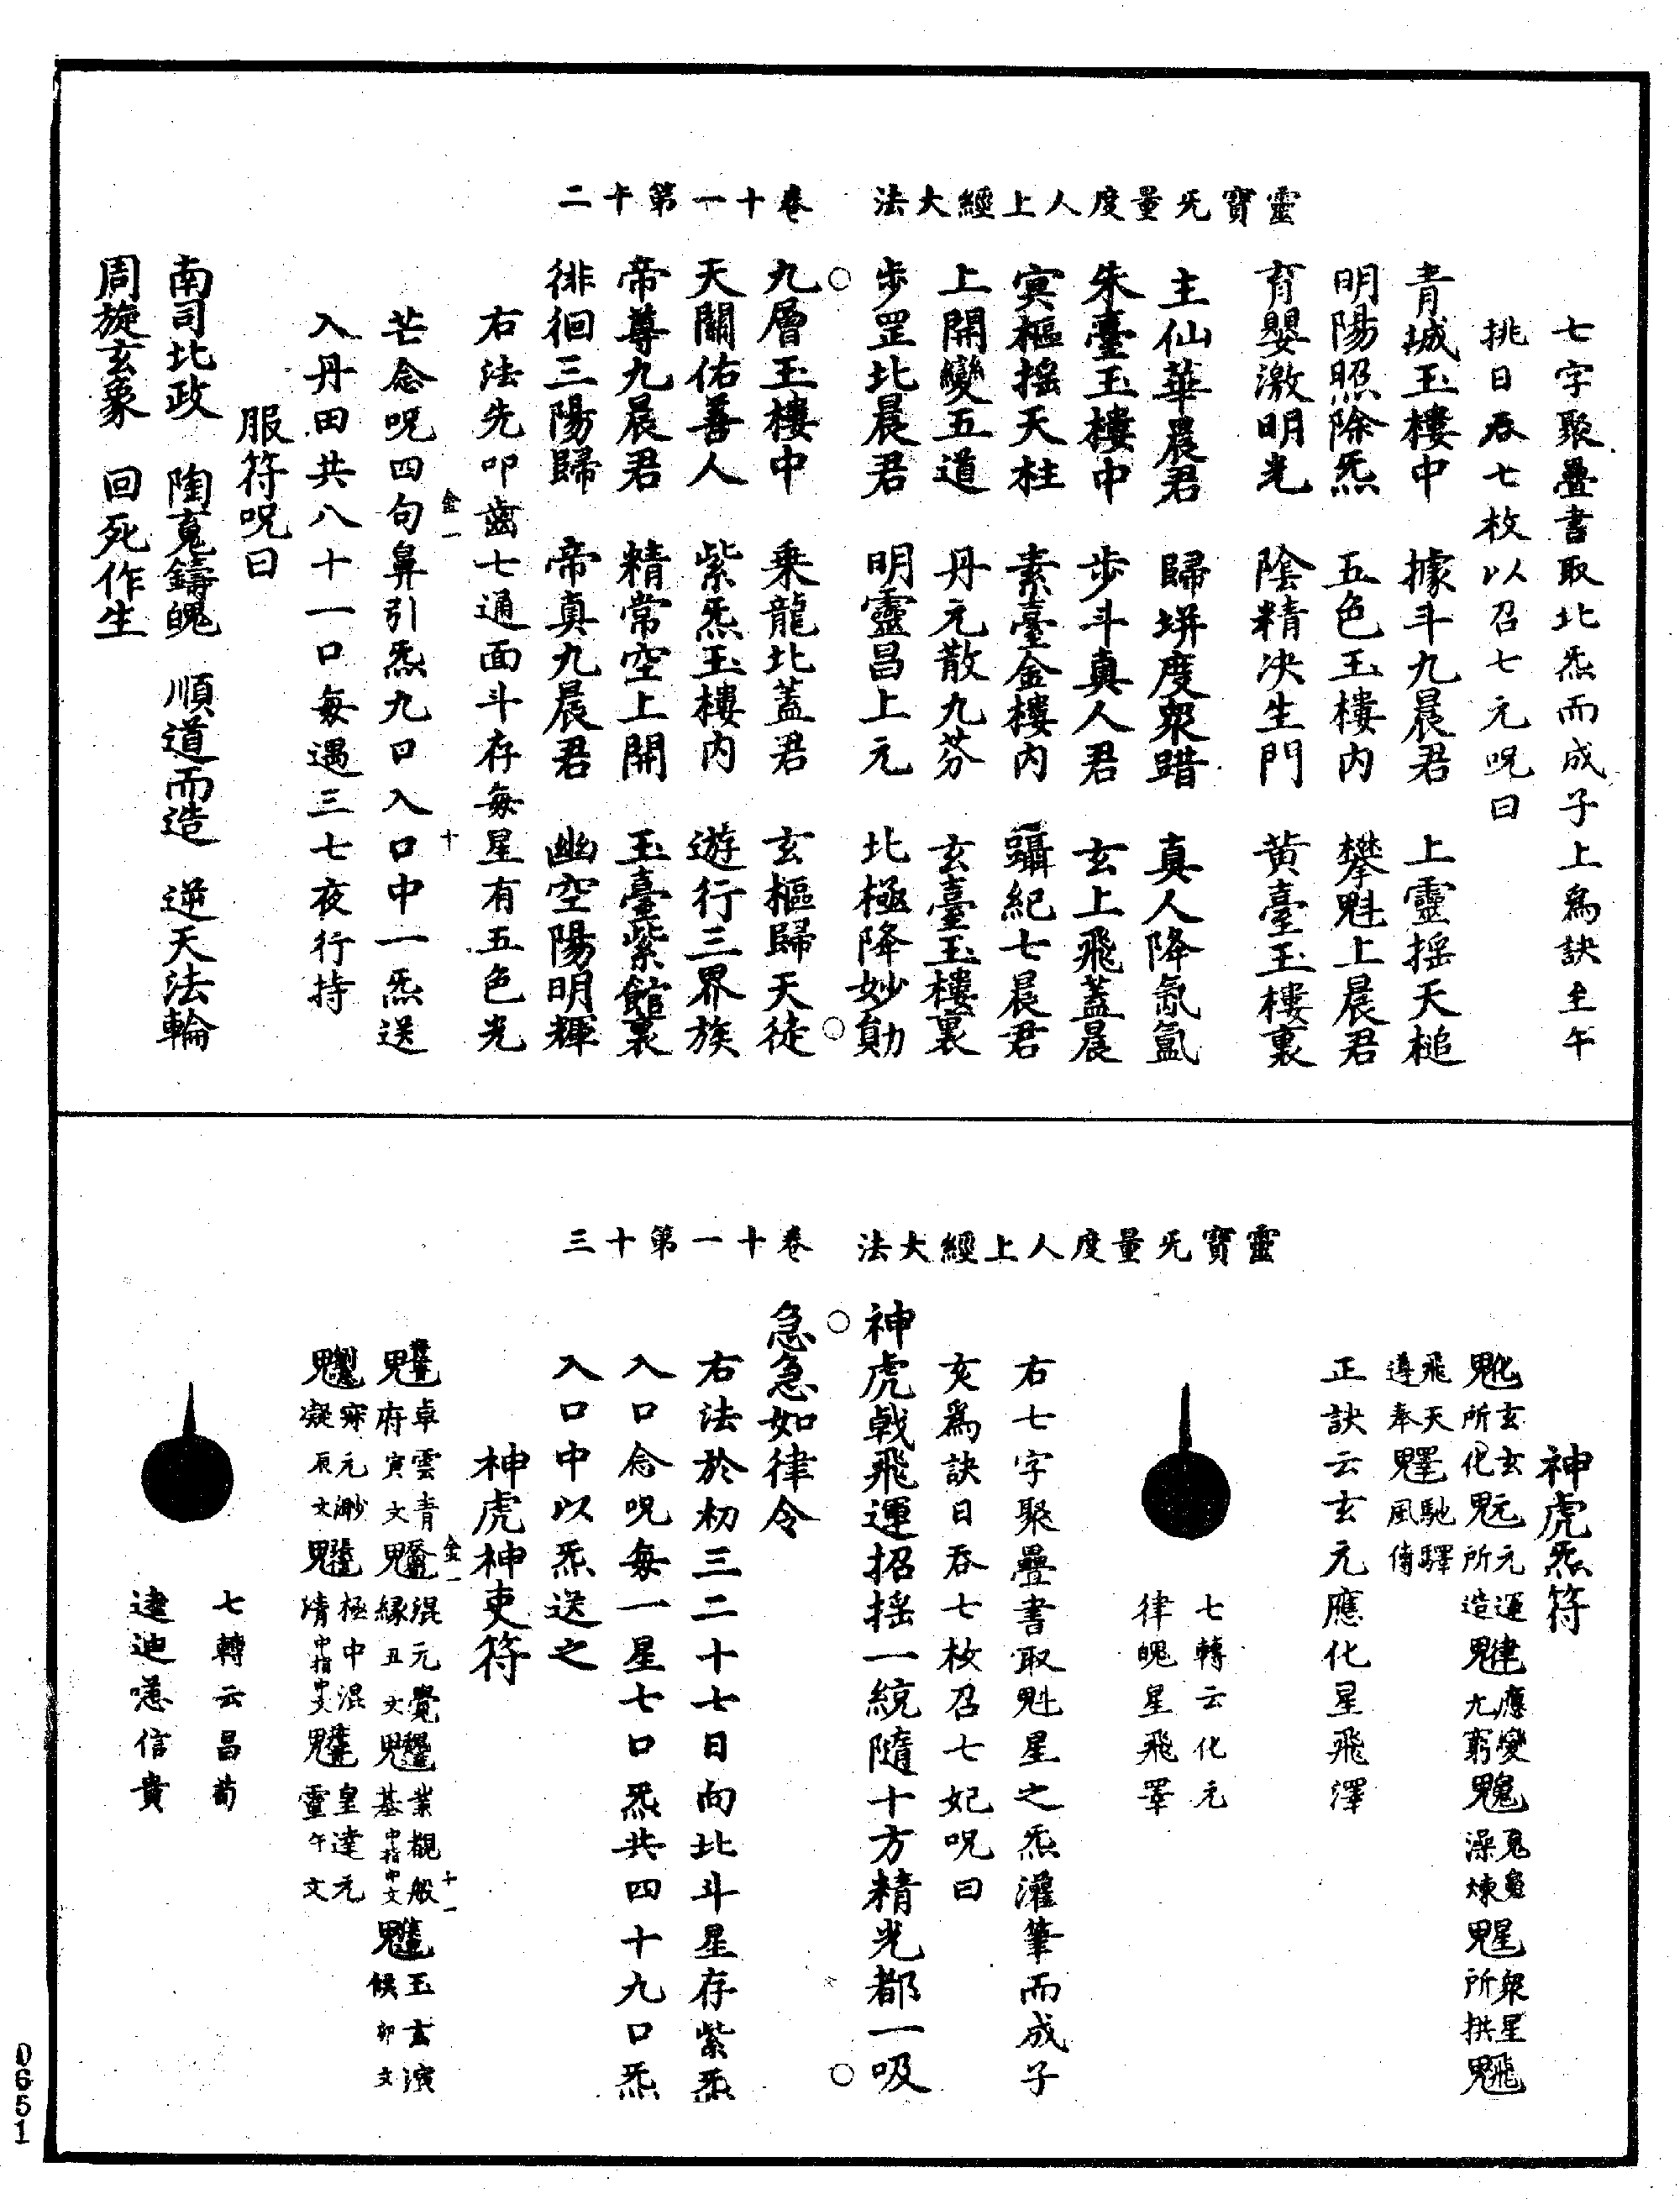 靈寶旡量度人上經大法 卷十一第十二
七字聚疊書取北炁而成子上爲訣至午
挑日吞七枚以召七元呪曰
青城玉樓中 據斗九晨君 上靈揺天槌
明陽照除炁 五色玉樓内 攀魁上晨君
育嬰激明光 陰精决生門 黄臺玉樓裏
主仙華晨君 歸垪度衆䠂 真人降氤氳
朱臺玉樓中 步斗真人君 玄上飛蓋晨
寞樞揺天柱 素臺金樓内 躡紀七晨君
上開變五道 丹元散九芬 玄臺玉樓裏
步罡北晨君 明靈昌上元 北極降妙勛
九層玉樓中 乗龍北蓋君 玄樞歸天徒
天關佑善人 紫炁玉樓内 遊行三界族
帝尊九晨君 精常空上開 玉臺紫館裏
徘徊三陽歸 帝真九晨君 幽空陽明輝
右法先叩齒七通面斗存每星有五色光
金一 十
芒念呪四句鼻引炁九口入口中一炁送
入丹田共八十一口每遇三七夜行持
服符呪曰
南司北政 陶䰟鑄魄 順道而造 逆天法輪
周旋玄象 回死作生
靈寶旡量度人上經大法 卷十一第十三
神虎炁符
化玄玄 元運 應變
所化 所造 尢窮 澡煉 衆星所拱
飛天遵奉 馳驛風倩
正訣云玄元應化星飛澤
七轉云化元
律魄星飛睪
右七字聚疊書取魁星之炁灌筆而成子
亥爲訣日吞七枚召七妃呪曰
神虎戟飛運招揺一統隨十方精光都一吸
急急如律令
右法於初三二十七日向北斗星存紫炁
入口念呪每一星七口炁共四十九口炁
入口中以炁送之
神虎神吏符
卓雲青府寅文 混元覺緑丑文 業覩般基中指中文 玉玄演候卯文
金一 十一
寀元渺凝辰文 極中混清中指中文 皇達元靈午文
七轉云昌萄
逮迪𢠵信貴
0651